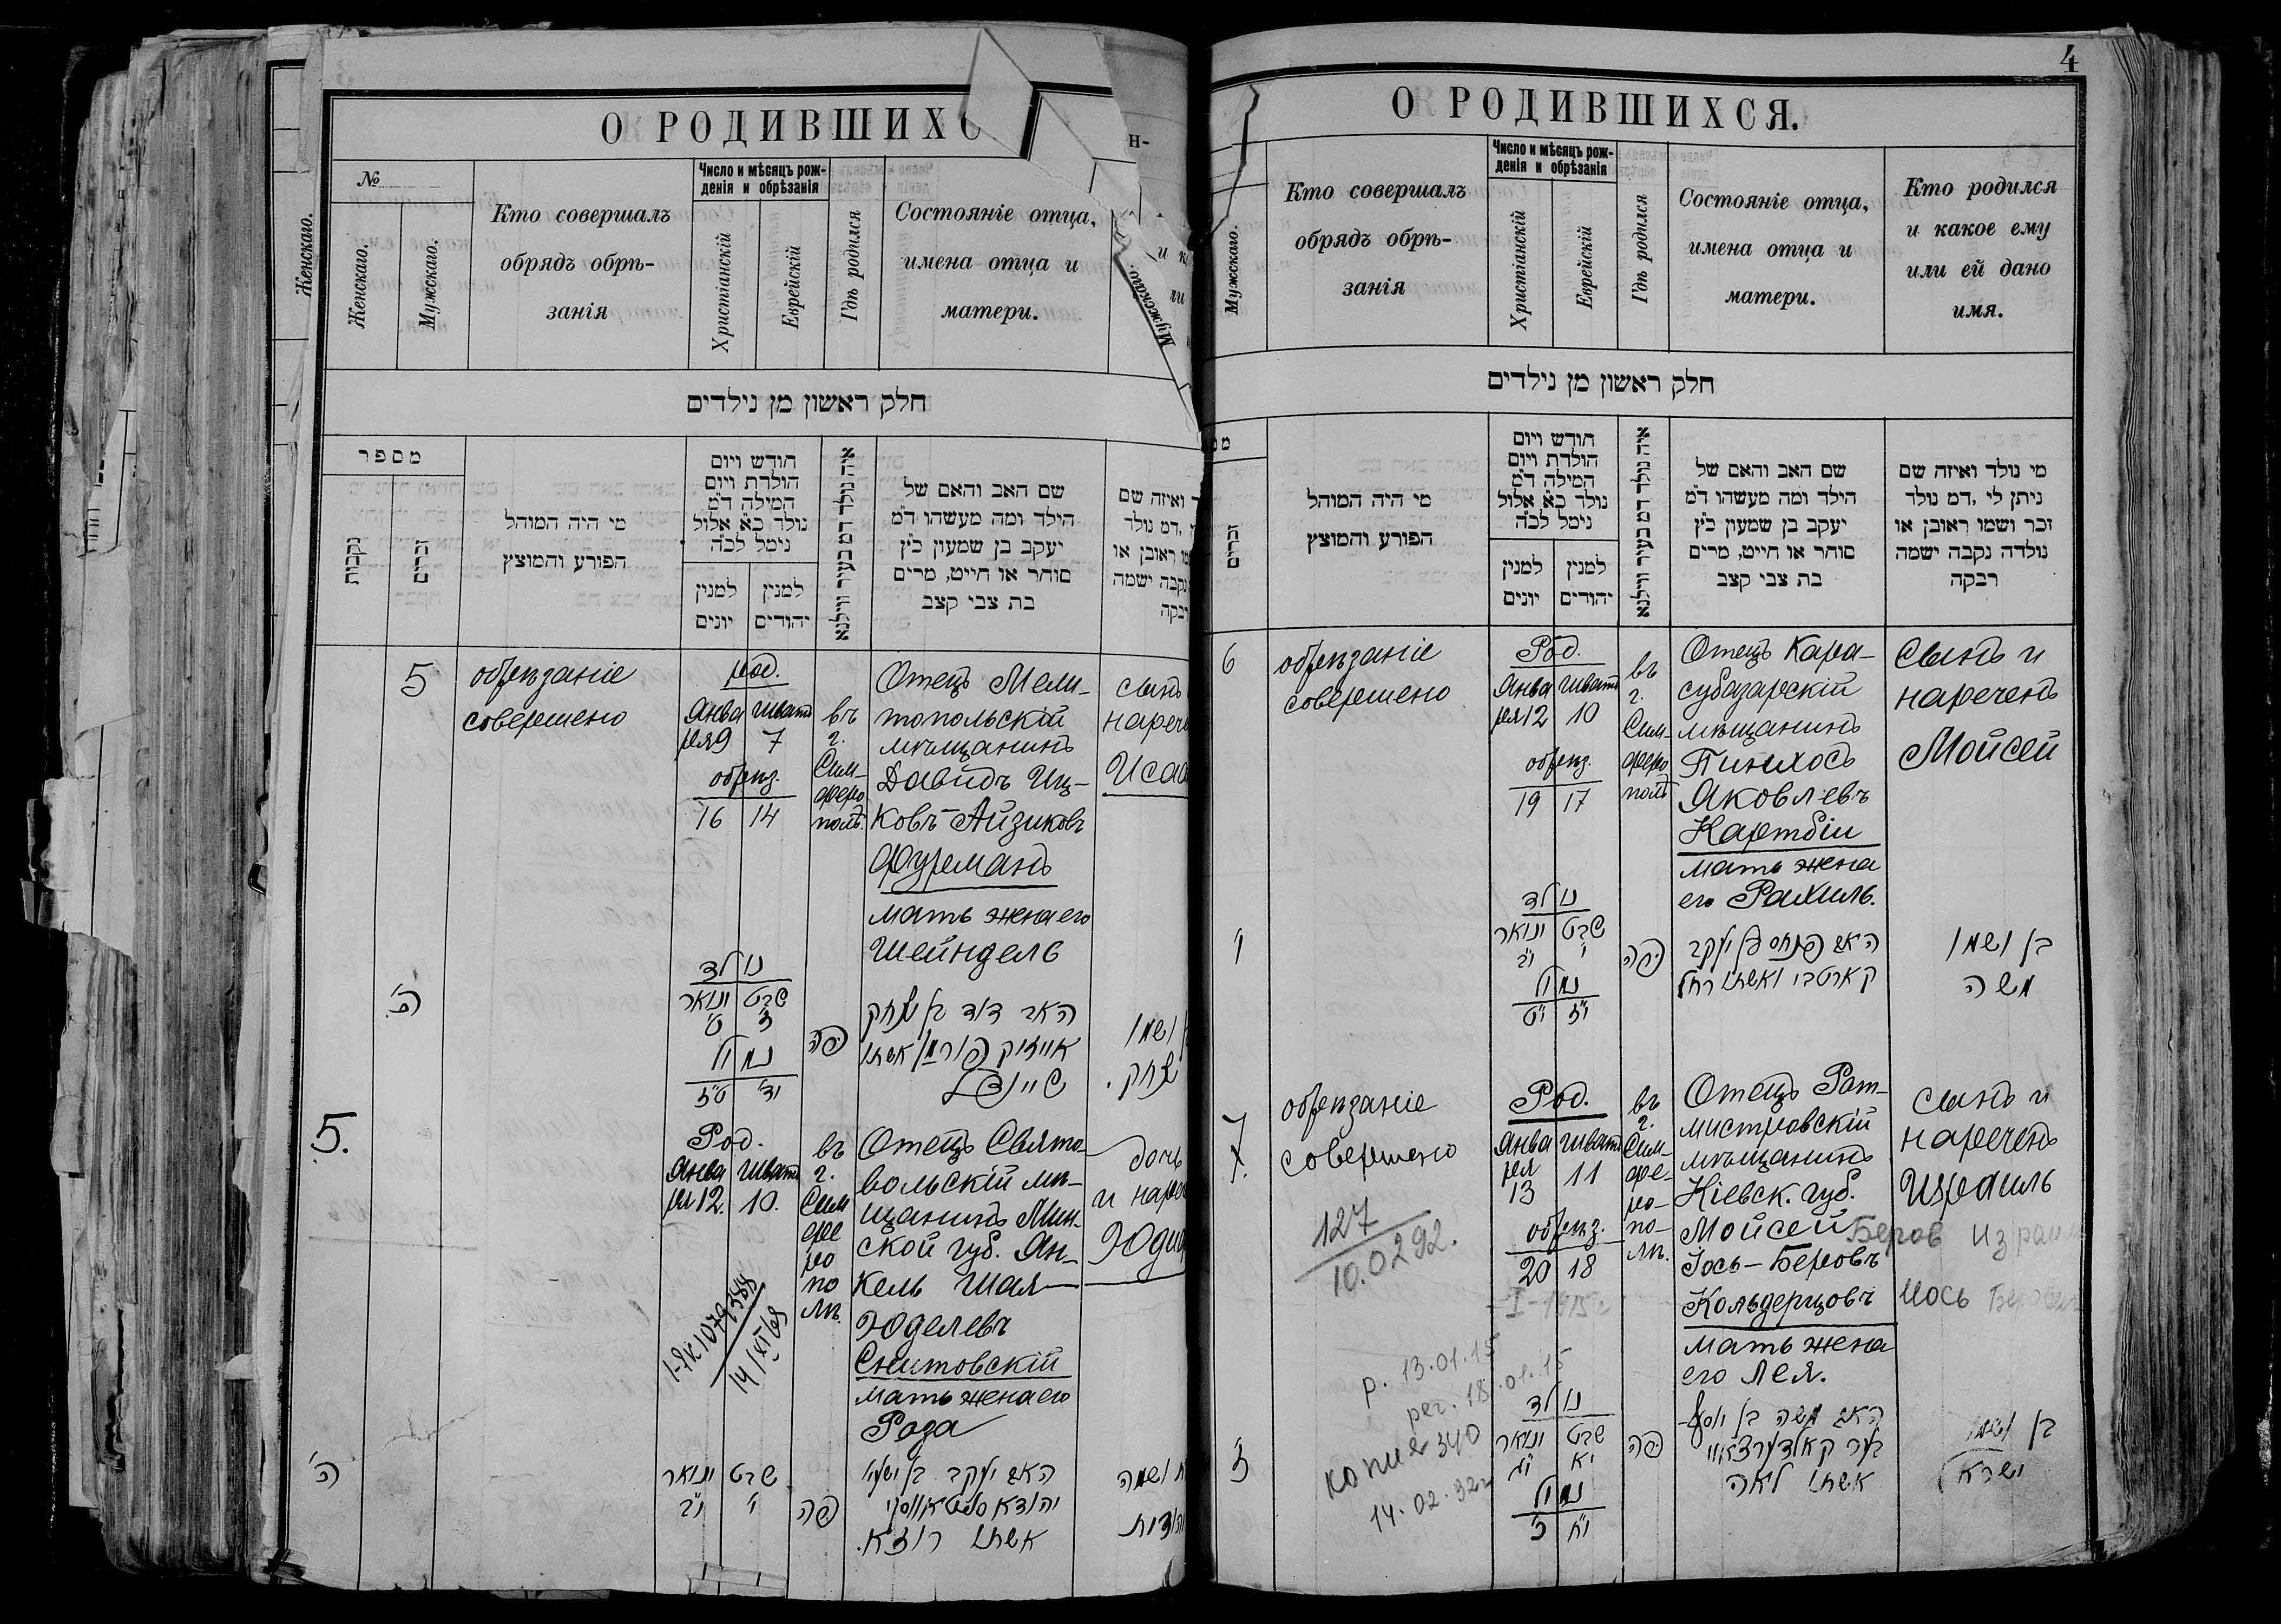 О РОДИВШИХС
№
Женскаго.
Женскаго.
Мужскаго.
Кто совершалъ
обрядъ обрѣ-
занія
Число и мѣсяцъ рож-
денія и обрѣзанія
Христіанскій
Еврейскій
Гдѣ родился
Состояніе отца,
имена отца и
матери.
חלק ראשון מן נילדים
מספר
נקבות
זכרים
מי היה המוהל
הפורע והמוצץ
חודש ויום
הולדת ויום
המילה ד״מ
נולד כ״א אלול
נימל לכ״ה
למנין
יונים
למנין
יהודים
איה נולד דמ בעיר ווילנא
שם האב והאם של
הילד ומה מעשהו ד״מ
יעקב בן שמעון כ״ץ
סוחר או חייט, מרים
בת צבי קצב
5
обрѣзаніе
совершено
род.
Янва Шватъ
ря9 7
обрѣз.
16 14
въ
г.
Сим-
феро
поль.
Отецъ Мели-
топольскій
мѣщанинъ
Давидъ Иц-
ковъ-Айзиковъ
Фурманъ
мать жена его
Шейндель
сынъ
Исаа
ה'
נולד
שבט ינואר
ז' ט'
נמול
י"ד ט"ז
פה
האב דוד בן יצחק
אייזיק פורמן אשתו
שיינדל
ושמו
יצחק.
5.
Род.
Янва Шватъ
ря 12. 10.
въ
г.
Сим
фе
ро
по
лѣ.
Отецъ Свято-
вольскій мѣ-
щанинъ Мин-
ской губ. Ян-
кель Шая-
Юделевъ
Снитовскій
мать жена его
Роза
дочь
ה'
שבט ינואר
י' י"ב
פה
רוזא.
О РОДИВШИХСЯ.
4
Мужскаго.
Кто совершалъ
обрядъ обрѣ-
занія
Число и мѣсяцъ рож-
денія и обрѣзанія
Христіанскій
Еврейскій
Гдѣ родился
Состояніе отца,
имена отца и
матери.
Кто родился
и какое ему
или ей дано
имя.
חלק ראשון מן נילדים
זכרים
מי היה המוהל
הפורע והמוצץ
חודש ויום
הולדת ויום
המילה ד״מ
נולד כ״א אלול
נימל לכ״ה
למנין
יונים
למנין
יהודים
איה נולד דמ בעיר ווילנא
שם האב והאם של
הילד ומה מעשהו ד״מ
יעקב בן שמעון כ״ץ
סוחר או חייט, מרים
בת צבי קצב
מי נולד ואיזה שם
ניתן לי, דמ נולד
זכר ושמו ראובן או
נולדה נקבה ישמה
רבקה
6
обрѣзаніе
совершено
Род.
Янва Шватъ
ря12 10
обрѣз.
19 17
въ
г.
Сим-
феро
поль
Отецъ Кара-
субазарскій
мѣщанинъ
Пинхосъ
Яковлевъ
Картбіи
мать жена
его Рахиль.
Сынъ и
нареченъ
Мойсей
ו'
נולד
שבט ינואר
י' י"ב
נמול
י"ז י"ט
פה
האב פנחס בן יעקב
קארטבי ואשתו רחל
בן ושמו
משה
7
7.
обрѣзаніе
совершено
Род.
Янва Шватъ
ря 11
13
обрѣз.
20 18
въ
г.
Сим-
фе-
ро-
по-
лѣ.
Отецъ Рот-
мистровскій
мѣщанинъ
Кіевск. губ.
Мойсей
Іось-Беровъ
Кольдерцовъ
мать жена
его Лея.
сынъ и
нареченъ
Израиль
Беров
Иось
127
10.02 92.
р. 13.01.15
рег. 18.01.15
копия 340
14.02.92г
ז'
נולד
שבט ינואר
י"א י"ג
נמול
י"ח כ'
פה
האב משה בן יוסף
אשתו לאה
בן ושמו
ישראל